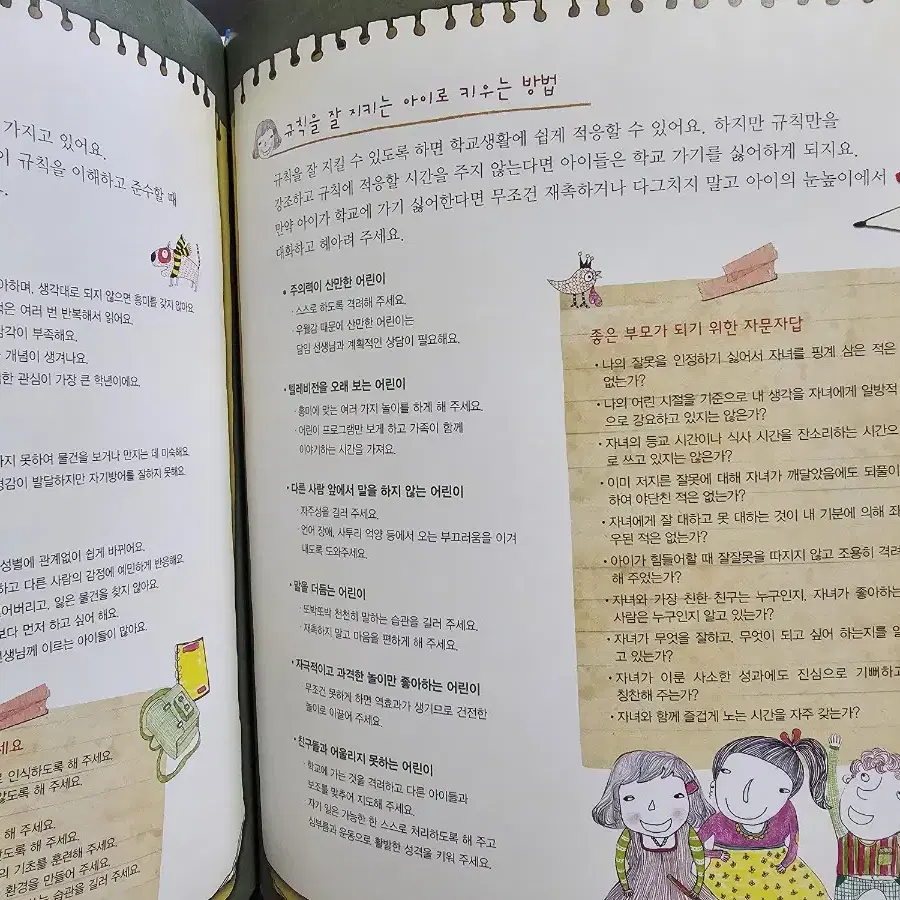 가지고 있어요.
이 규칙을 이해하고 준수할 때
아하며, 생각대로 되지 않으면 흥미를 갖지 않아요.
적은 여러 번 반복해서 읽어요.
감각이 부족해요.
개념이 생겨나요.
한 관심이 가장 큰 학년이에요.
하지 못하여 물건을 보거나 만지는 데 미숙해요.
경감이 발달하지만 자기방어를 잘하지 못해요.
성별에 관계없이 쉽게 바뀌어요.
하고 다른 사람의 감정에 예민하게 반응해요.
어버리고, 잃은 물건을 찾지 않아요.
보다 먼저 하고 싶어 해요.
선생님께 이르는 아이들이 많아요.
세요
로 인식하도록 해 주세요.
않도록 해 주세요.
해 주세요.
하도록 해 주세요.
의 기초를 훈련해 주세요.
환경을 만들어 주세요.
는 습관을 길러 주세요.
규칙을 잘 지키는 아이로 키우는 방법
규칙을 잘 지킬 수 있도록 하면 학교생활에 쉽게 적응할 수 있어요. 하지만 규칙만을
강조하고 규칙에 적응할 시간을 주지 않는다면 아이들은 학교 가기를 싫어하게 되지요.
만약 아이가 학교에 가기 싫어한다면 무조건 재촉하거나 다그치지 말고 아이의 눈높이에서
대화하고 헤아려 주세요.
• 주의력이 산만한 어린이
· 스스로 하도록 격려해 주세요.
· 우월감 때문에 산만한 어린이는
담임 선생님과 계획적인 상담이 필요해요.
• 텔레비전을 오래 보는 어린이
· 흥미에 맞는 여러 가지 놀이를 하게 해 주세요.
· 어린이 프로그램만 보게 하고 가족이 함께
이야기하는 시간을 가져요.
• 다른 사람 앞에서 말을 하지 않는 어린이
· 자주성을 길러 주세요.
· 언어 장애, 사투리 억양 등에서 오는 부끄러움을 이겨
내도록 도와주세요.
• 말을 더듬는 어린이
· 또박또박 천천히 말하는 습관을 길러 주세요.
· 재촉하지 말고 마음을 편하게 해 주세요.
• 자극적이고 과격한 놀이만 좋아하는 어린이
무조건 못하게 하면 역효과가 생기므로 건전한
놀이로 이끌어 주세요.
• 친구들과 어울리지 못하는 어린이
· 학교에 가는 것을 격려하고 다른 아이들과
보조를 맞추어 지도해 주세요.
자기 일은 가능한 한 스스로 처리하도록 해 주고
심부름과 운동으로 활발한 성격을 키워 주세요.
좋은 부모가 되기 위한 자문자답
• 나의 잘못을 인정하기 싫어서 자녀를 핑계 삼은 적은
없는가?
• 나의 어린 시절을 기준으로 내 생각을 자녀에게 일방적
으로 강요하고 있지는 않은가?
• 자녀의 등교 시간이나 식사 시간을 잔소리하는 시간으
로 쓰고 있지는 않은가?
• 이미 저지른 잘못에 대해 자녀가 깨달았음에도 되풀이
하여 야단친 적은 없는가?
• 자녀에게 잘 대하고 못 대하는 것이 내 기분에 의해 좌
우된 적은 없는가?
• 아이가 힘들어할 때 잘잘못을 따지지 않고 조용히 격려
해 주었는가?
• 자녀와 가장 친한 친구는 누구인지, 자녀가 좋아하는
사람은 누구인지 알고 있는가?
• 자녀가 무엇을 잘하고, 무엇이 되고 싶어 하는지를 알
고 있는가?
• 자녀가 이룬 사소한 성과에도 진심으로 기뻐하고
칭찬해 주는가?
• 자녀와 함께 즐겁게 노는 시간을 자주 갖는가?